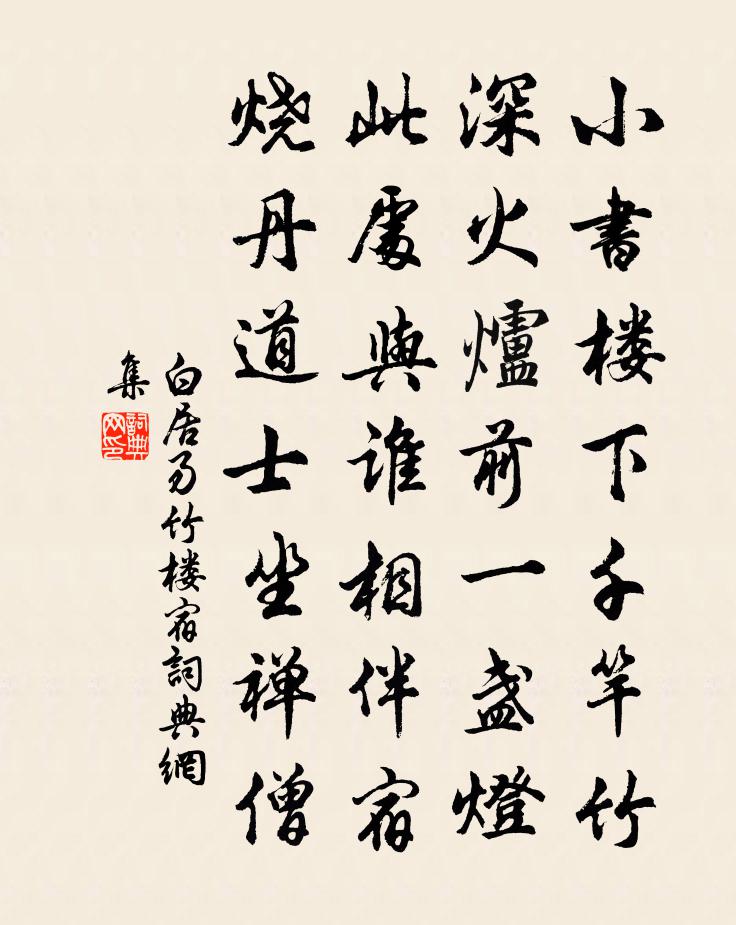 小書楼下千竿竹
深火爐前一盏燈
此處與誰相伴宿
烧丹道士坐禅僧
白居易竹楼宿詞典網
集
詞典
网印